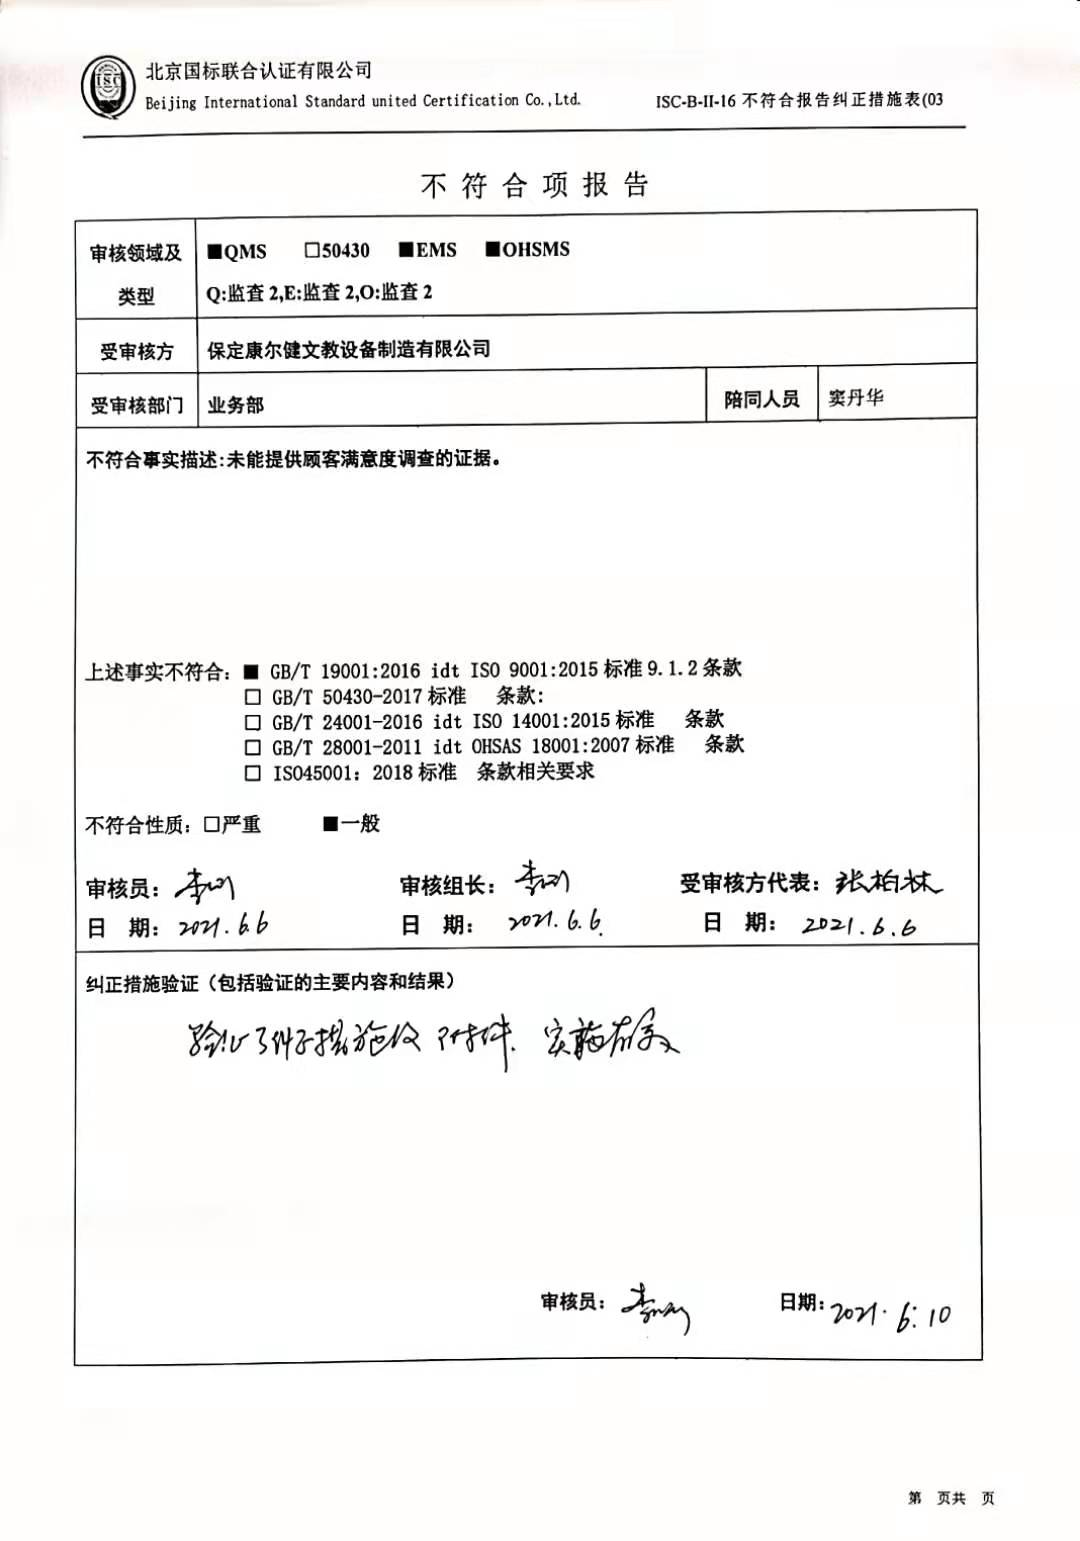 北京国标联合认证有限公司
Beijing International Standard united Certification Co.,Ltd.
ISC-B-II-16 不符合报告纠正措施表(03
ISC
不符合项报告
审核领域及类型
■QMS □50430 ■EMS ■OHSMS
Q:监查2,E:监查2,O:监查2
受审核方 保定康尔健文教设备制造有限公司
受审核部门 业务部 陪同人员 窦丹华
不符合事实描述:未能提供顾客满意度调查的证据。
上述事实不符合: ■ GB/T 19001:2016 idt ISO 9001:2015标准9.1.2条款
□ GB/T 50430-2017标准 条款:
□ GB/T 24001-2016 idt ISO 14001:2015标准 条款
□ GB/T 28001-2011 idt OHSAS 18001:2007标准 条款
□ ISO45001: 2018标准 条款相关要求
不符合性质: □严重 ■一般
审核员: 审核组长: 受审核方代表: 张柏林
日 期: 2021.6.6 日 期: 2021.6.6. 日 期: 2021.6.6
纠正措施验证(包括验证的主要内容和结果)
验证了纠正措施及附件. 实施有效
审核员: 日期: 2021.6.10
第 页共 页